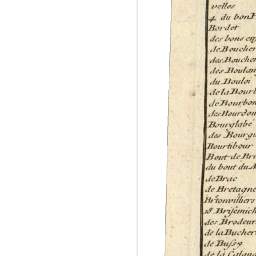 velles
4. du bon P
Bordet
des bons en
de Boucher
des Boucher
des Boulan
du Bouloi
de la Bourb
de Bourbon
des Bourdon
Bourglabé
des Bourgu
Bourtibour
Bout de Bri
du bout du M
de Brac
de Bretagne
Brionvilliers
18. Brisemich
des Brodeur
de la Bucher
de Bussy
de la Caland